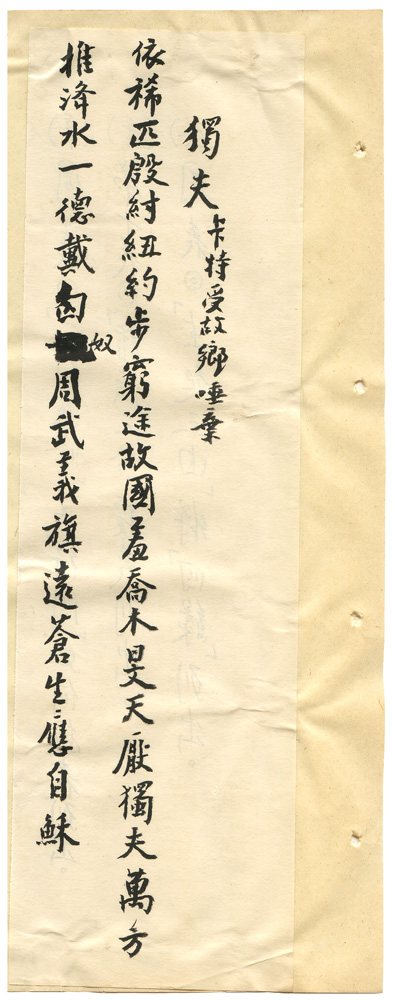 獨夫 卡特受故鄉唾棄
依稀匹殷紂紐約步窮途故國羞喬木旻天厭獨夫萬方
推洚水一德戴匈奴周武義旗遠蒼生應自穌